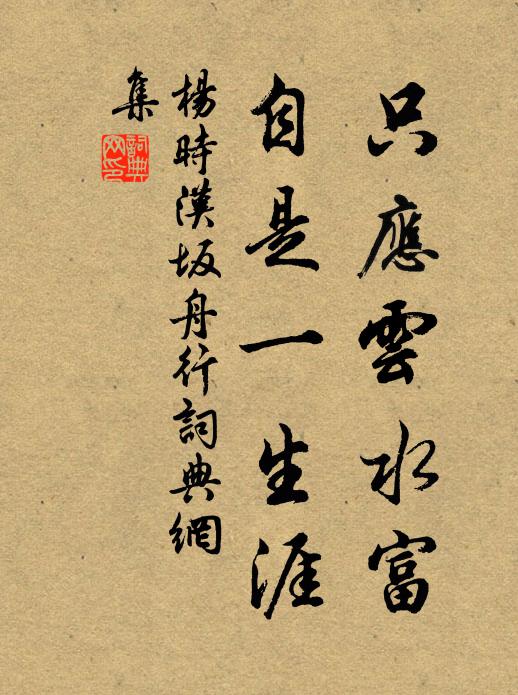 只應雲水富
自是一生涯
楊時漢坂舟行詞典網
集
詞典
网印